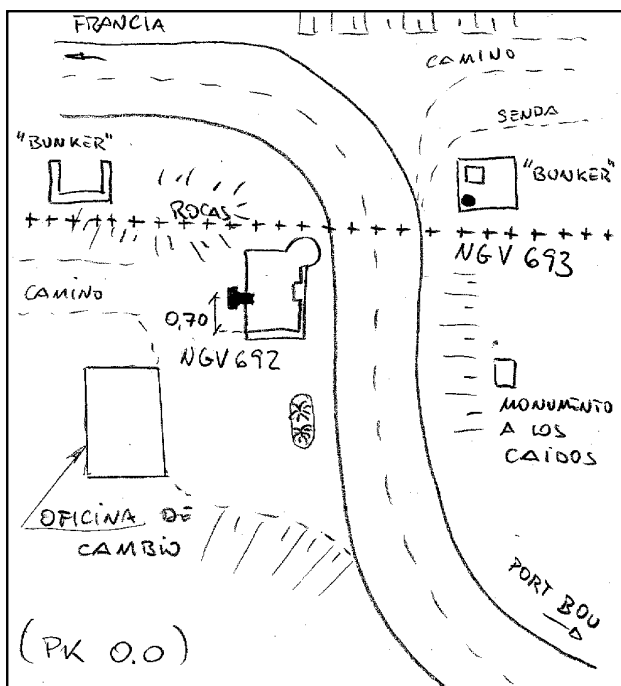 FRANCIA
CAMINO
SENDA
"BUNKER"
"BUNKER"
ROCAS
NGV 693
CAMINO
0,70
NGV 692
MONUMENTO
A LOS
CAÍDOS
OFICINA DE
CAMBIO
PORT BOU
(PK 0.0)